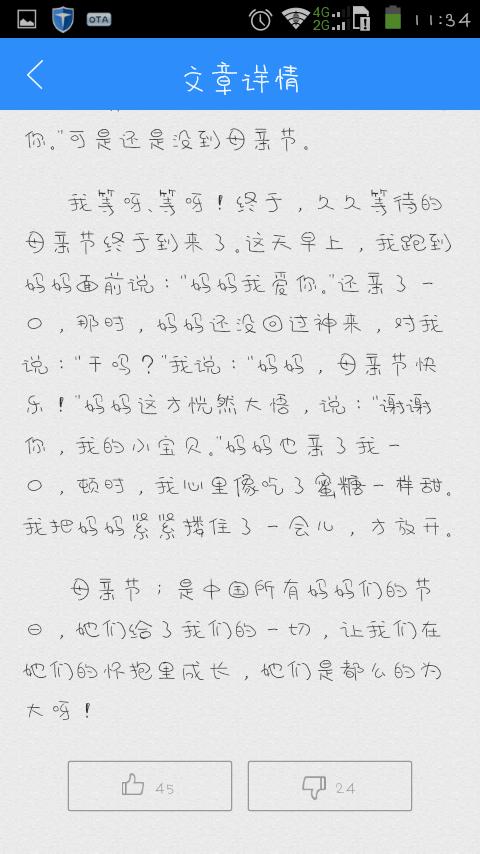 OTA 4G 2G 11:34
文章详情
你。"可是还是没到母亲节。
我等呀、等呀！终于，久久等待的
母亲节终于到来了。这天早上，我跑到
妈妈面前说："妈妈我爱你。"还亲了一
口，那时，妈妈还没回过神来，对我
说："干吗？"我说："妈妈，母亲节快
乐！"妈妈这才恍然大悟，说："谢谢
你，我的小宝贝。"妈妈也亲了我一
口，顿时，我心里像吃了蜜糖一样甜。
我把妈妈紧紧搂住了一会儿，才放开。
母亲节；是中国所有妈妈们的节
日，她们给了我们的一切，让我们在
她们的怀抱里成长，她们是都么的为
大呀！
45 24